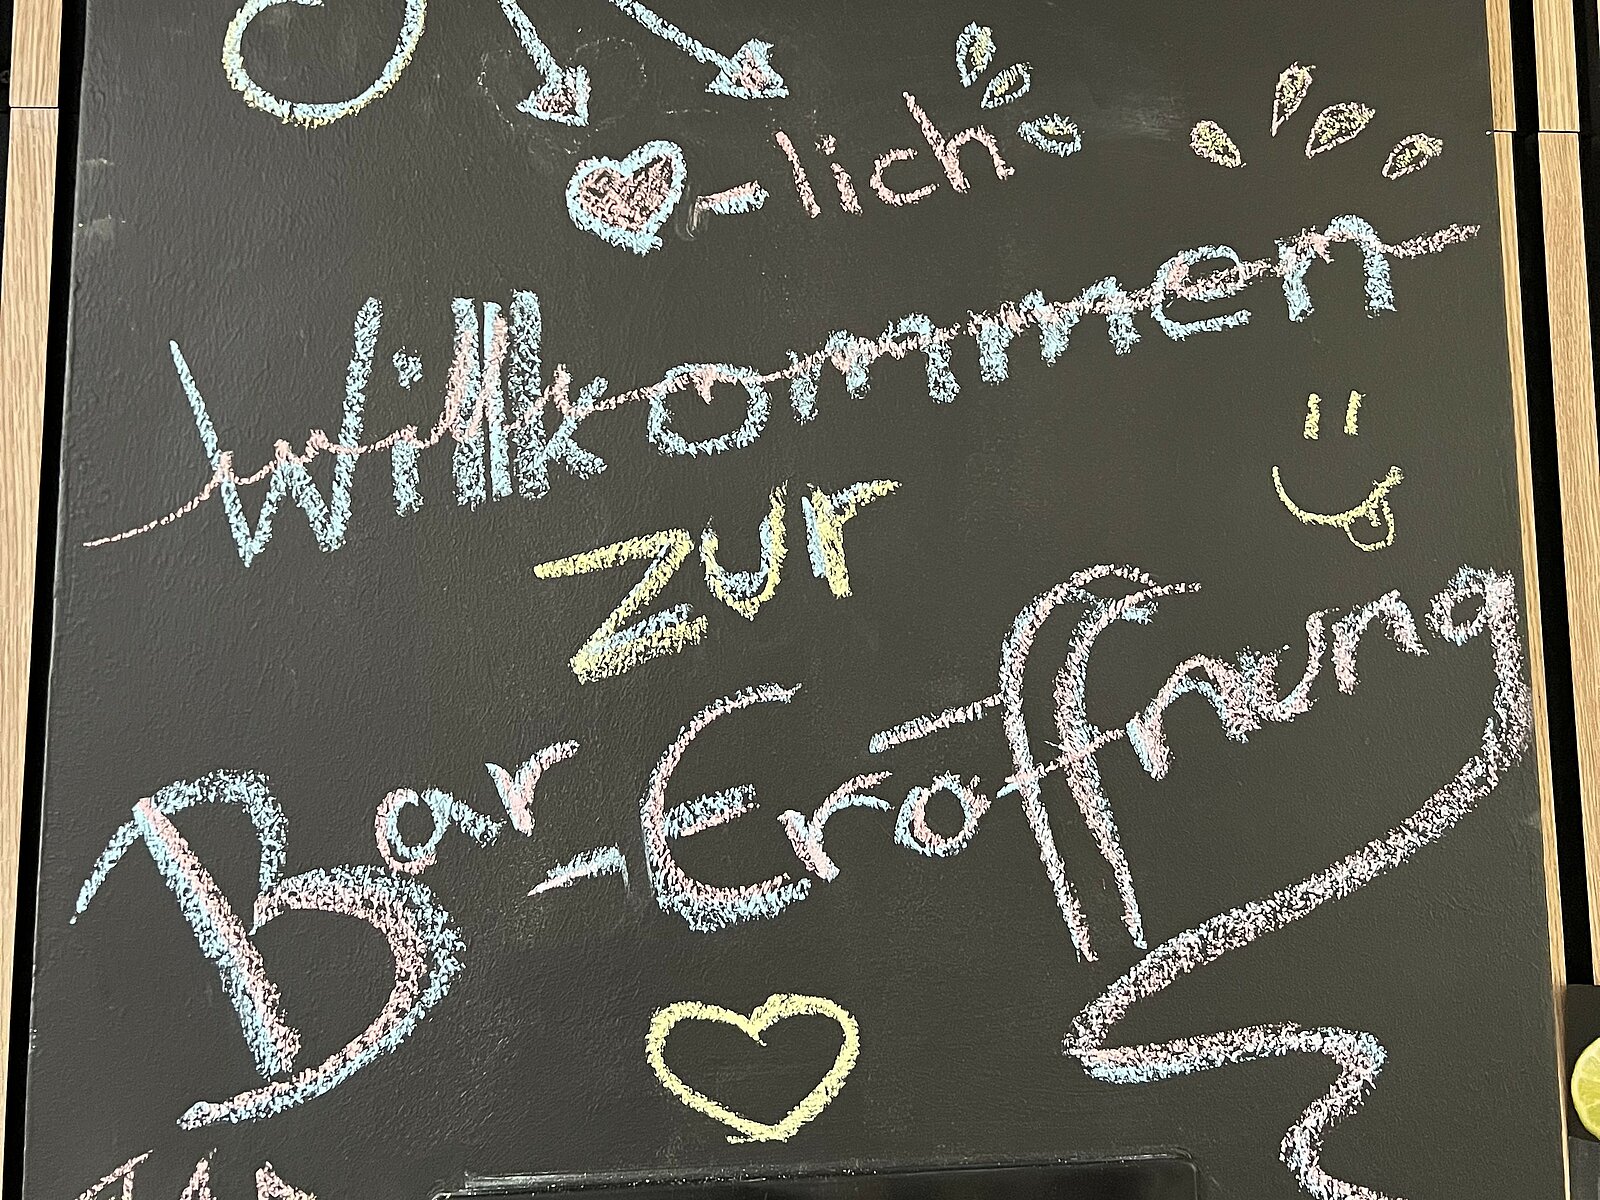 ♥-lich
Willkommen
zur
Bar-Eröffnung